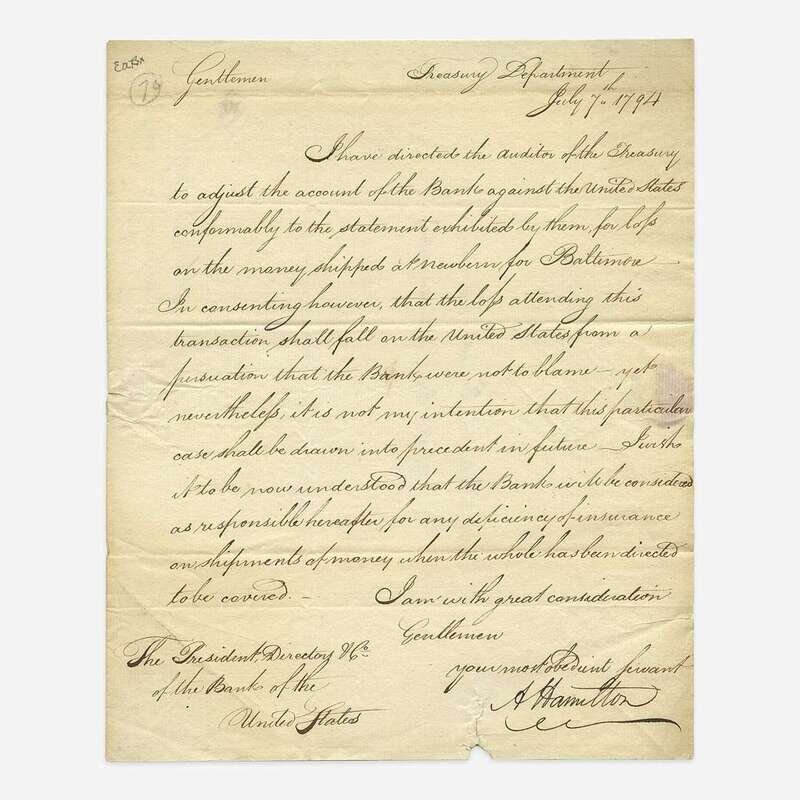 EaBx
79
Gentlemen Treasury Department
July 7th 1794
I have directed the auditor of the Treasury
to adjust the account of the Bank against the United States
conformably to the statement exhibited by them, for loſs
on the money shipped at newbern for Baltimore —
In consenting however, that the loſs attending this
transaction shall fall on the United States from a
persuation that the Bank were not to blame – yet
nevertheleſs, it is not my intention that this particular
case shall be drawn into precedent in future — I wish
it to be now understood that the Bank will be considered
as responsible hereafter for any deficiency of insurance
on shipments of money when the whole has been directed
to be covered. – I am with great consideration
Gentlemen
The President, Directors & Co. your most obedient servant
of the Bank of the A Hamilton
United States